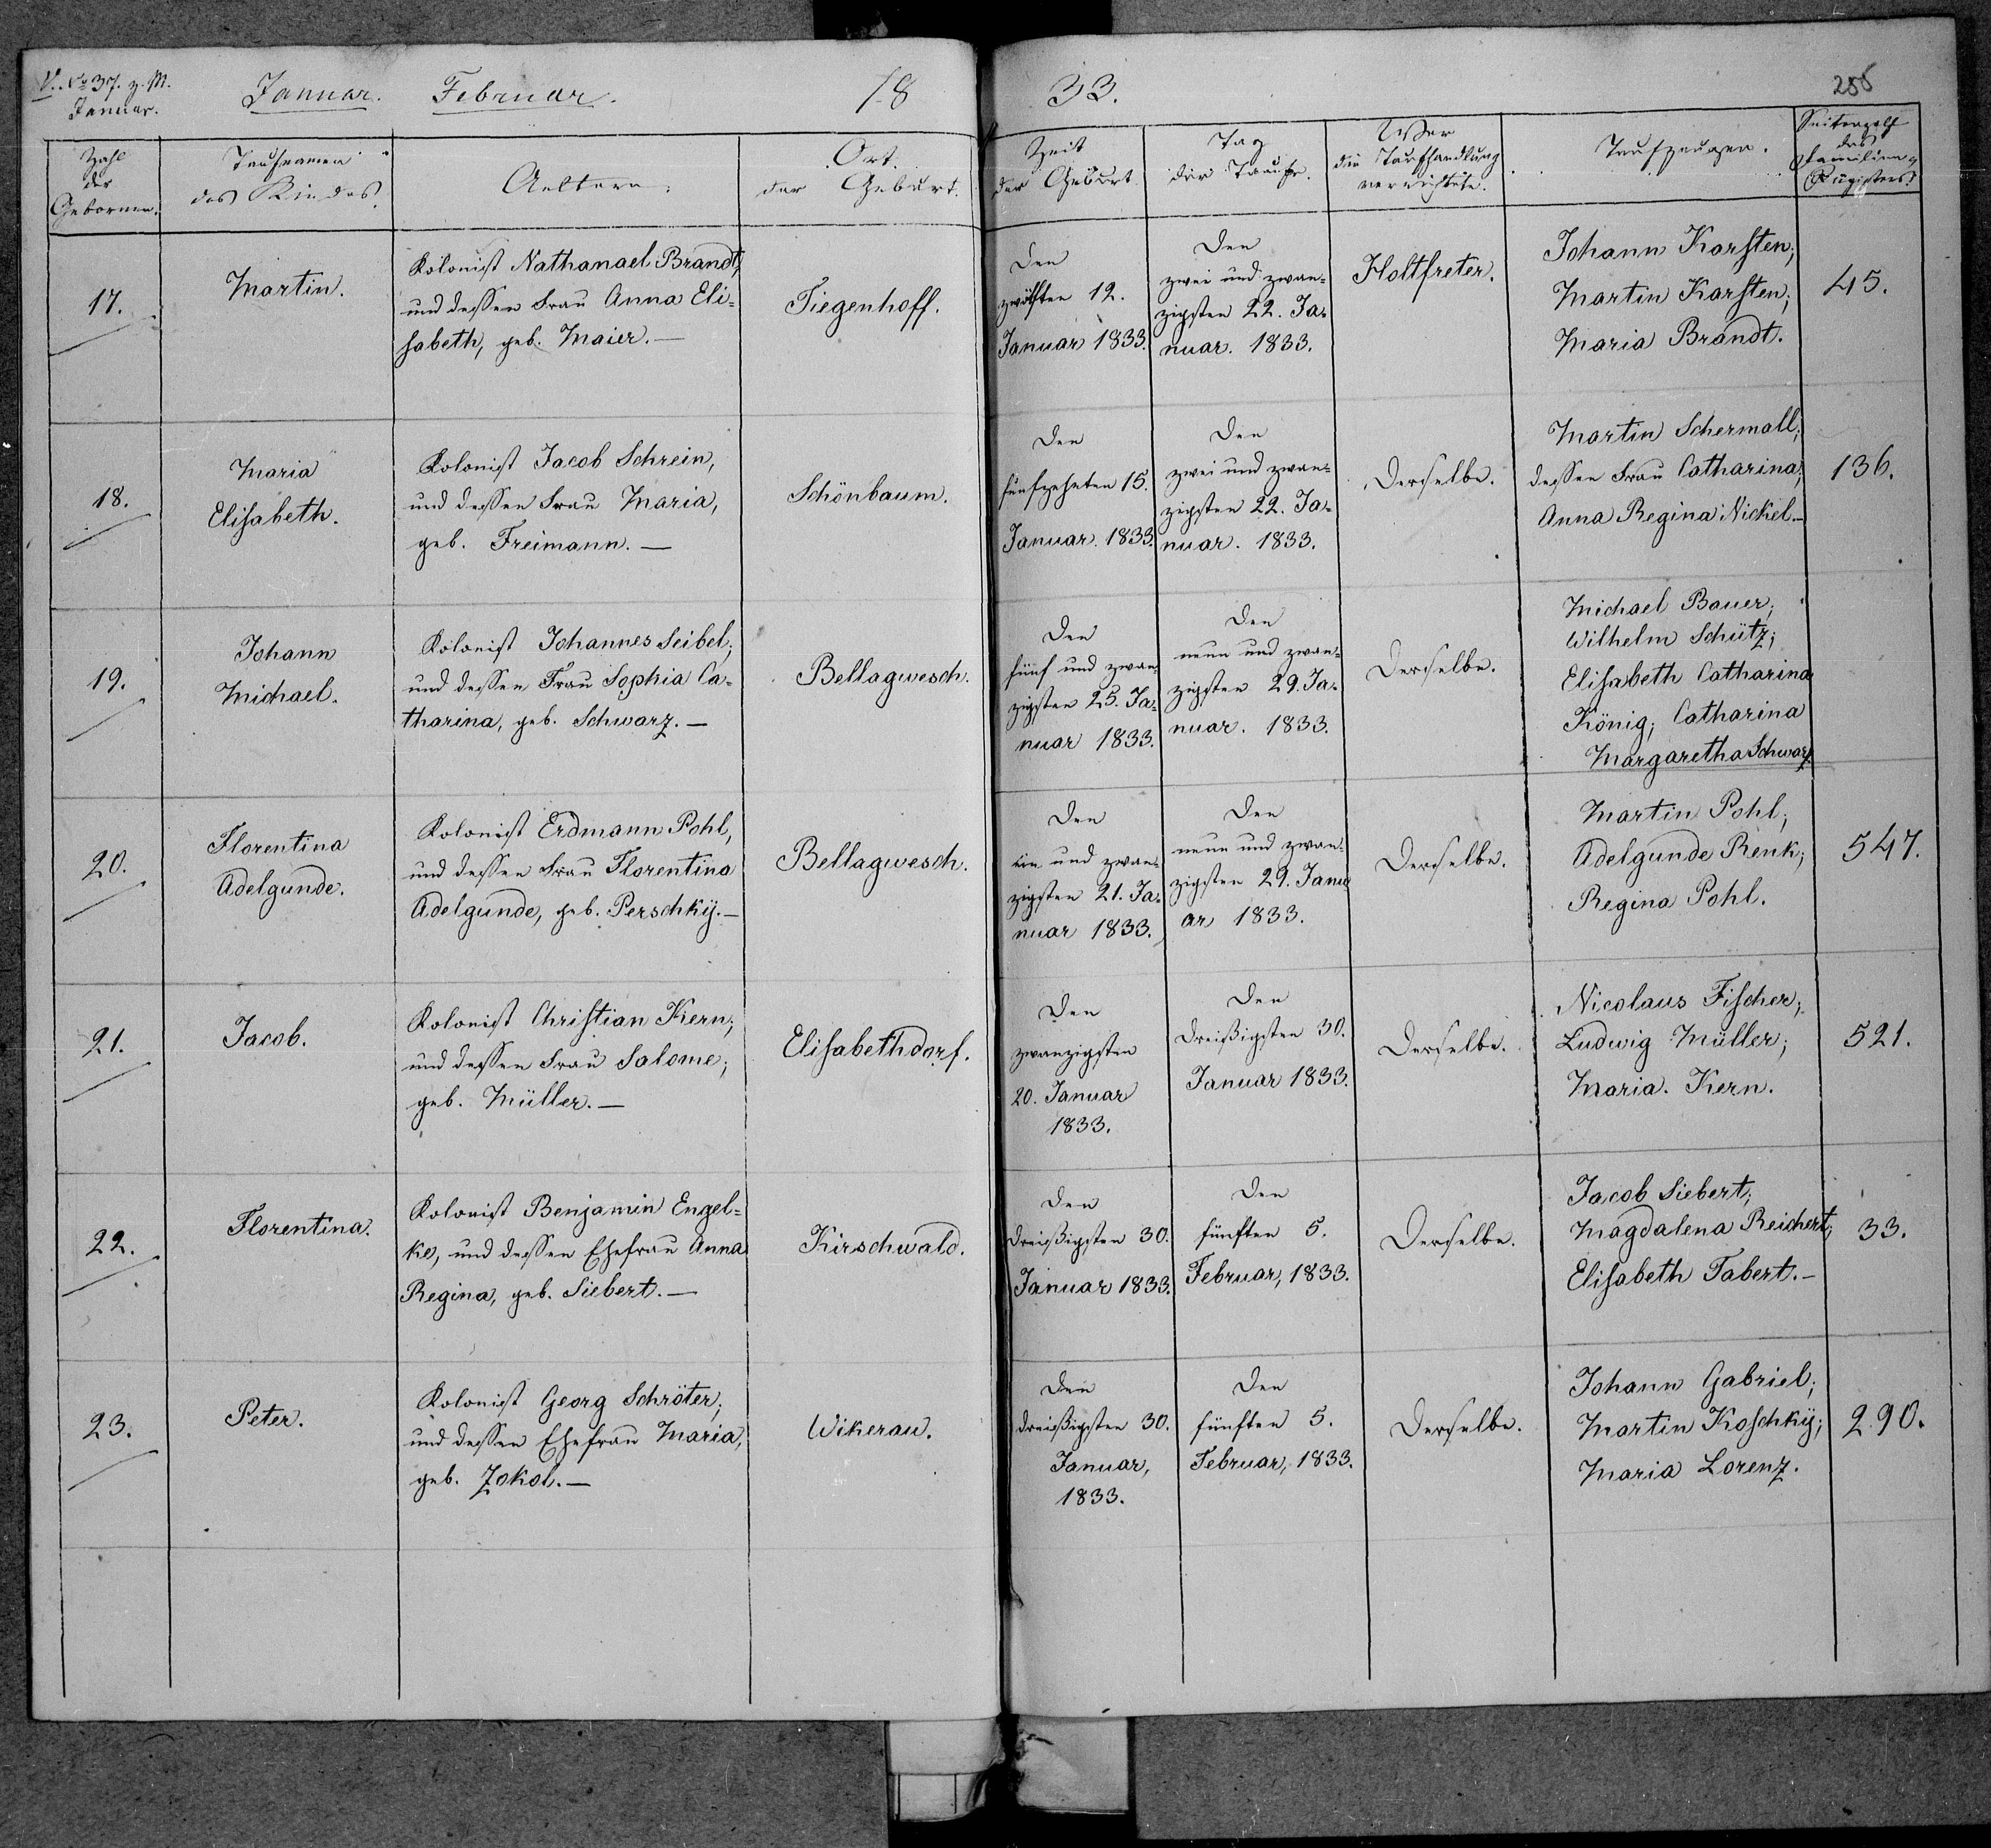 Januar. Februar. 18 33.
Januar.
Zahl der Gebornen.
Taufnamen des Kindes.
Aeltern.
Ort der Geburt.
Zeit der Geburt.
Tag der Taufe.
Wer die Taufhandlung verrichtete.
Taufzeugen.
Seitenzahl des Familien-Registers.
17.
Martin.
Kolonist Nathanael Brandt,
und dessen Frau Anna Eli=
sabeth, geb. Maier. —
Tiegenhoff.
Den
zwölften 12.
Januar 1833.
Den
zwei und zwan=
zigsten 22. Ja=
nuar. 1833.
Holtfreter.
Johann Karsten;
Martin Karsten;
Maria Brandt.
45.
18.
Maria
Elisabeth.
Kolonist Jacob Schrein,
und dessen Frau Maria,
geb. Freimann. —
Schönbaum.
Den
fünfzehnten 15.
Januar. 1833.
Den
zwei und zwan=
zigsten 22. Ja=
nuar. 1833.
Derselbe.
Martin Schermall;
dessen Frau Catharina;
Anna Regina Nickel. —
136.
19.
Johann
Michael.
Kolonist Johannes Seibel;
und dessen Frau Sophia Ca=
tharina, geb. Schwarz. —
Bellagwesch.
Den
fünf und zwan=
zigsten 25. Ja=
nuar 1833.
Den
neun und zwan=
zigsten 29. Ja=
nuar. 1833.
Derselbe.
Michael Bauer;
Wilhelm Schütz;
Elisabeth Catharina
König; Catharina
Margaretha Schwarz.
20.
Florentina
Adelgunde.
Kolonist Erdmann Pohl,
und dessen Frau Florentina
Adelgunde, geb. Perschkÿ. —
Bellagwesch.
Den
ein und zwan=
zigsten 21. Ja=
nuar 1833.
Den
neun und zwan=
zigsten 29. Janu
ar 1833.
Derselbe.
Martin Pohl;
Adelgunde Renk;
Regina Pohl.
547.
21.
Jacob.
Kolonist Christian Kern;
und dessen Frau Salome;
geb. Müller. —
Elisabethdorf.
Den
zwanzigsten
20. Januar
1833.
Den
dreißigsten 30.
Januar 1833.
Derselbe.
Nicolaus Fischer;
Ludwig Müller;
Maria. Kern.
521.
22.
Florentina.
Kolonist Benjamin Engel=
ke, und dessen Ehefrau Anna
Regina, geb. Siebert. —
Kirschwald.
Den
dreißigsten 30.
Januar 1833.
Den
fünften 5.
Februar, 1833.
Derselbe.
Jacob Siebert;
Magdalena Reichert;
Elisabeth Tabert. —
33.
23.
Peter.
Kolonist Georg Schröter;
und dessen Ehefrau Maria,
geb. Zokol. —
Wikerau.
Den
dreißigsten 30.
Januar,
1833.
Den
fünften 5.
Februar, 1833.
Derselbe.
Johann Gabriel;
Martin Koschkÿ;
Maria Lorenz.
290.